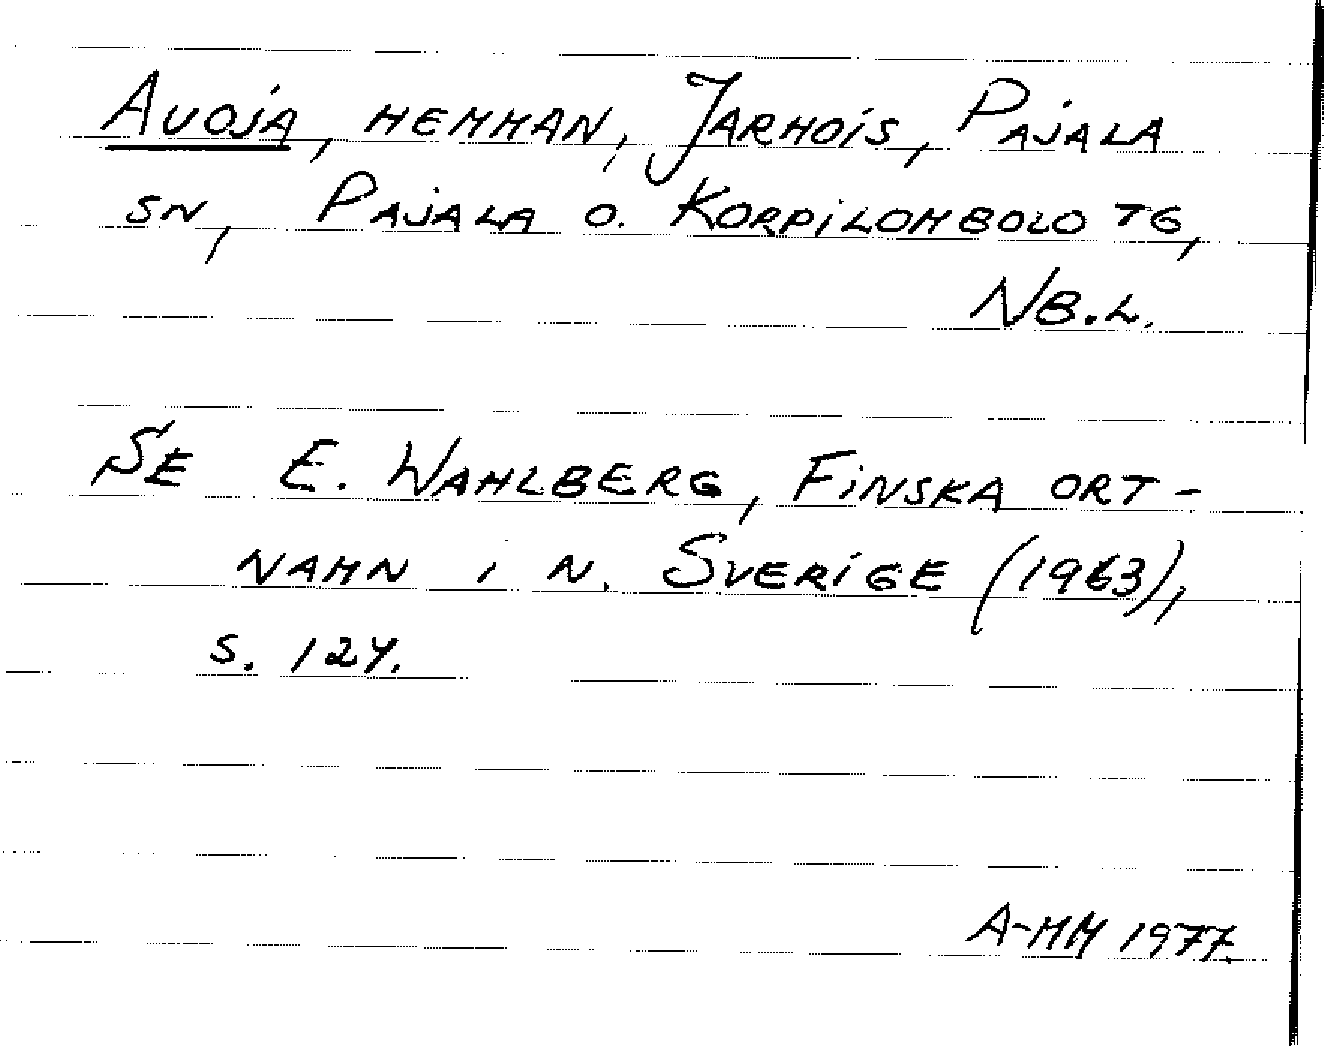 AVOJA, HEMMAN, JARHOIS, PAJALA
SN, PAJALA O. KORPILOMBOLO TG,
NB.L.
SE E. WAHLBERG, FINSKA ORT-
NAMN I N. SVERIGE (1963),
S. 124.
A-MM 1977.